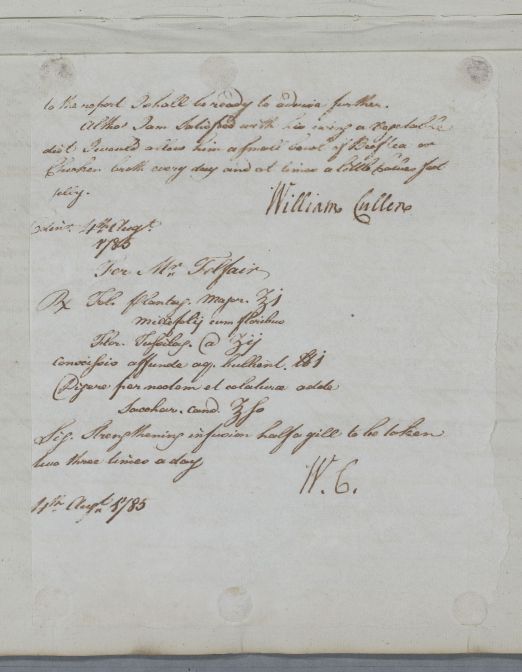 to the report I shall be ready to advise further.
Altho' I am Satisfied with his using a Vegetable
diet I would allow him a small bowl of Beef tea or
Chicken broth every day and at times a little Calves foot
jelly.
William Cullen
Edinr. 4th Augt.
1785
For Mr. Telfair
Rx Fol. Plantag. Major. ʒi
millefolij cum floribus
Flor. Tussilag. @ ʒij
concisis affunde aq. bullient. ℔i
Digere per noctem et colaturæ adde
Sacchar. cand. ʒſs
Sig. Strengthening infusion half a gill to be taken
two three times a day
W. C.
4th Augt. 1785